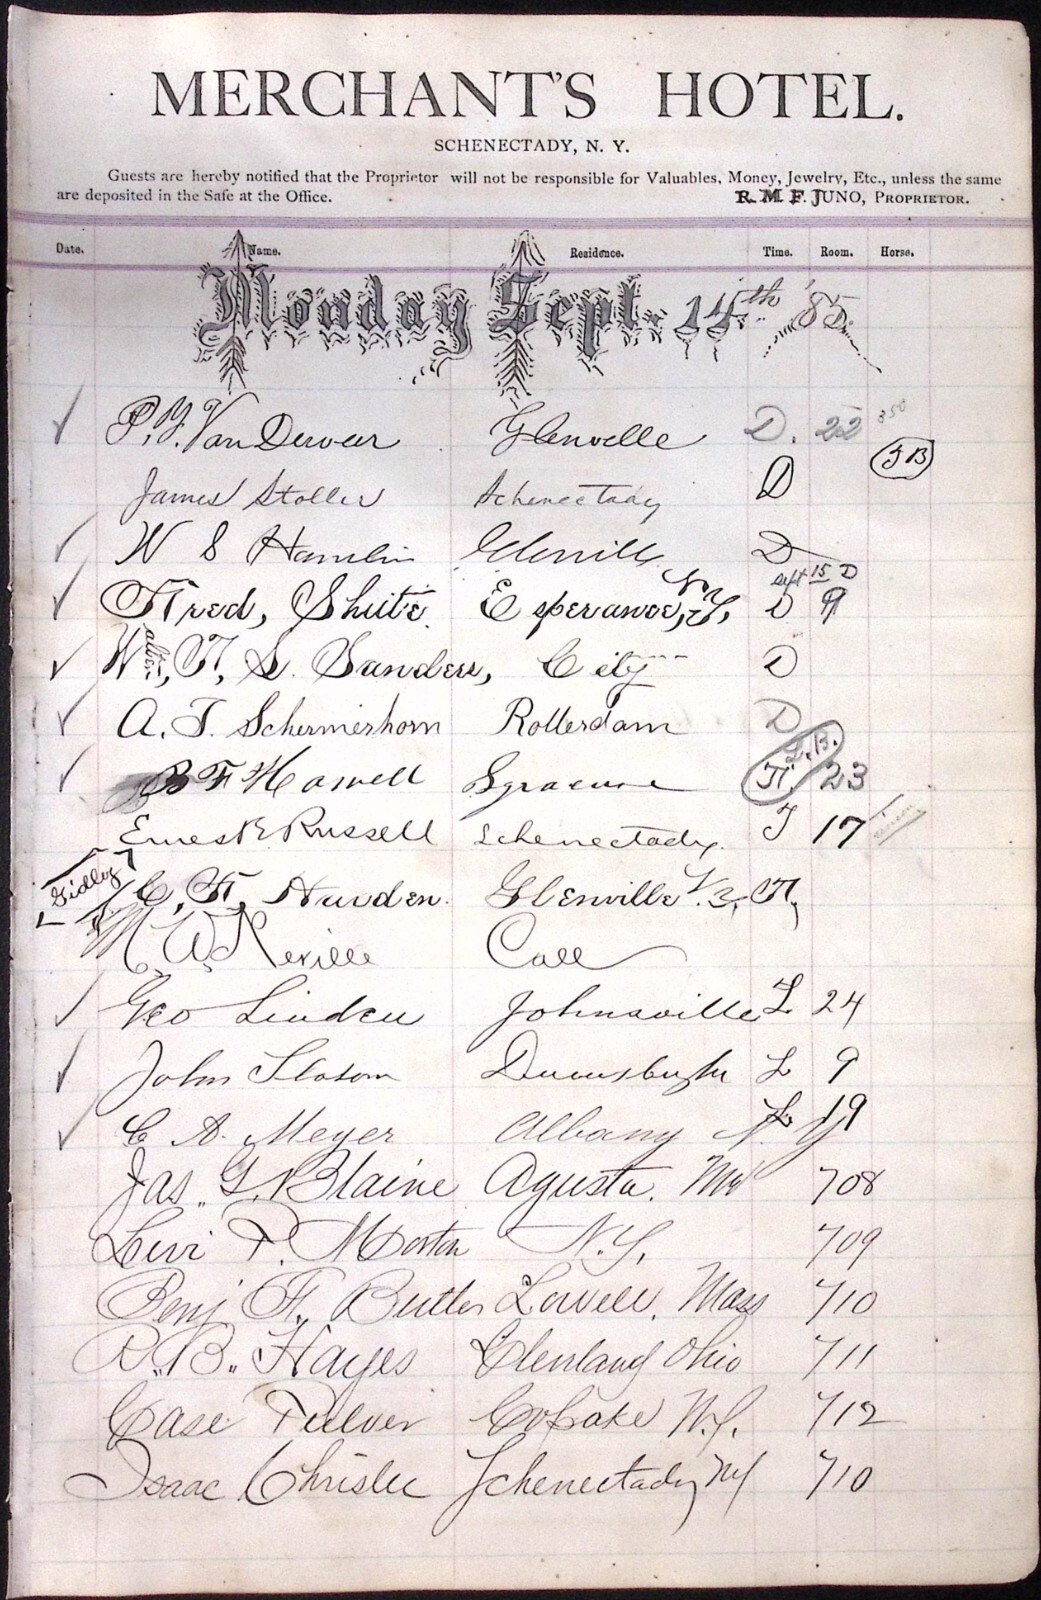 MERCHANT'S HOTEL.
SCHENECTADY, N. Y.
Guests are hereby notified that the Proprietor will not be responsible for Valuables, Money, Jewelry, Etc., unless the same
are deposited in the Safe at the Office. R. M. F. JUNO, PROPRIETOR.
Date. Name. Residence. Time. Room. Horse.
Monday Sept. 14th 85.
P. Y. Van Derveer Glenville D. 22 350
James Stoller Schenectady D JB
W S Hamlin Glenvill D
Sept 15 D
Fred, Shute. Esperance, N.Y. D 9
W, F, S. Sanders, City D
A. J. Schermerhorn Rotterdam D
B F Howell Syracuse H. L.B. 23
Ernest Russell Schenectady. T 17
Gidley C, F, Harden. Glenville V. 3, H,
M. W. Neville Call
Geo Linden Johnsville L 24
John Slosom Duanesburgh L 9
C A. Meyer Albany N Y L 19
Jas. G. Blaine Agusta. Me 708
Levi P. Morton N.Y. 709
Benj F. Butler Lowell, Mass 710
R. B. Hayes Clevland Ohio 711
Case Pulver Copake N.Y. 712
Isaac Chrisler Schenectady NY 710